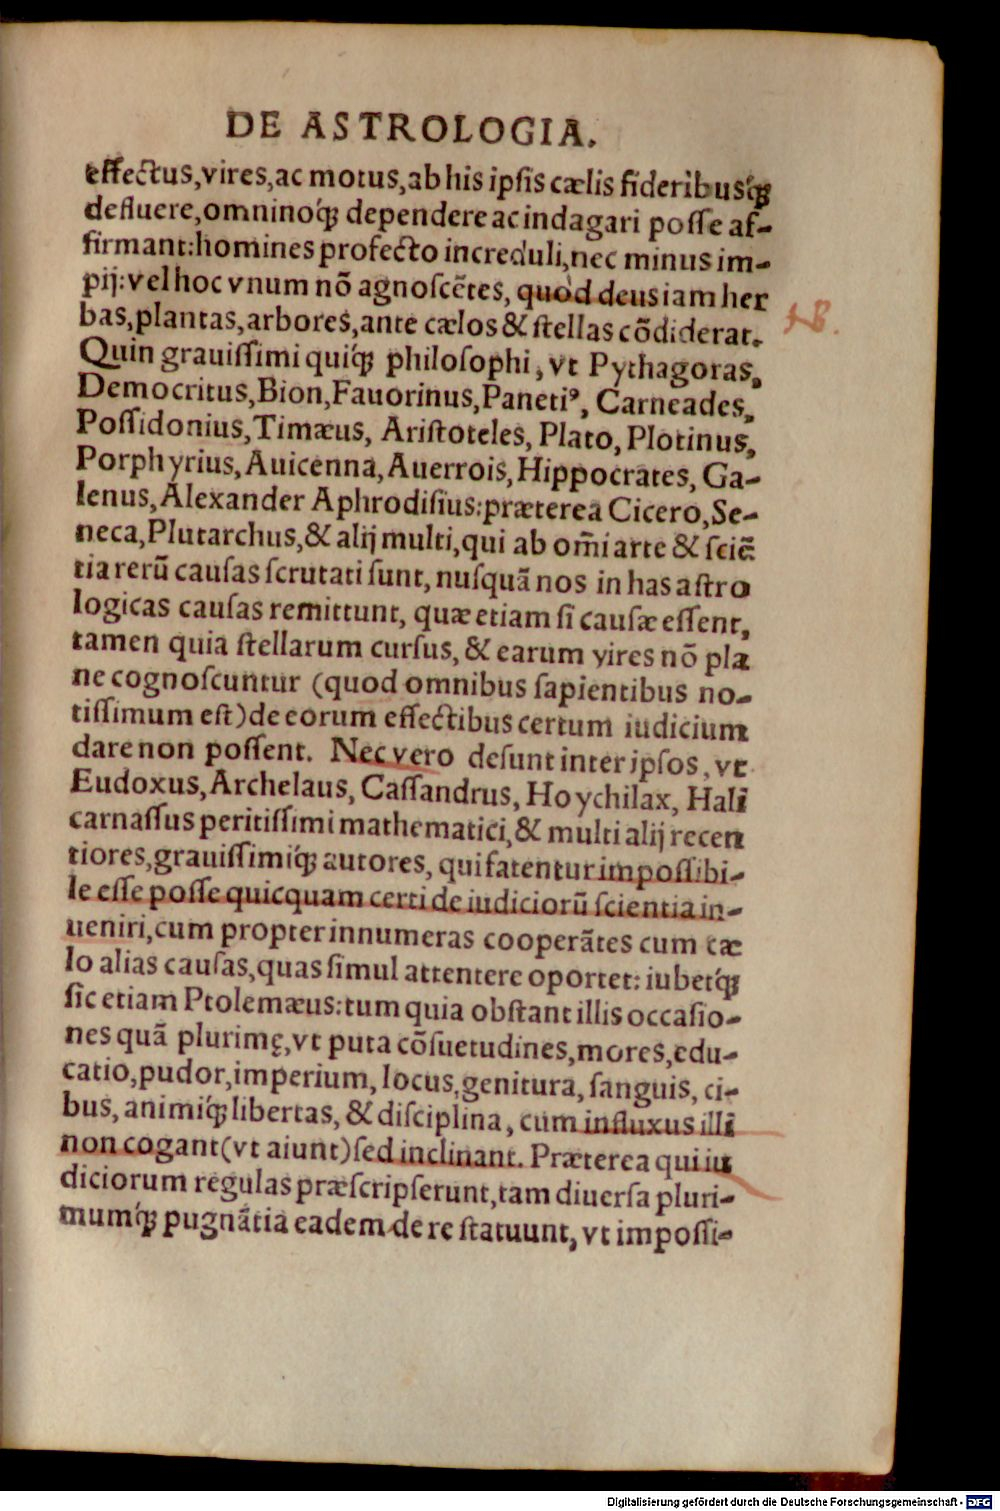 DE ASTROLOGIA.
effectus,vires,ac motus,ab his ipsis cælis sideribusq́ꝫ
defluere,omninoq́ꝫ dependere ac indagari posse af-
firmant:homines profecto increduli,nec minus im-
pij:vel hoc vnum nõ agnoscẽtes, quòd deus iam her
bas,plantas,arbores,ante cælos & stellas cõdiderat.
NB.
Quin grauissimi quiq́ꝫ philosophi, vt Pythagoras,
Democritus,Bion,Fauorinus,Panetiꝰ, Carneades,
Possidonius,Timæus, Aristoteles, Plato, Plotinus,
Porphyrius, Auicenna, Auerrois, Hippocrates, Ga-
lenus, Alexander Aphrodisius:præterea Cicero,Se-
neca,Plutarchus,& alij multi,qui ab om̃i arte & sciẽ
tia rerũ causas scrutati sunt, nusquã nos in has astro
logicas causas remittunt, quæ etiam si causæ essent,
tamen quia stellarum cursus, & earum vires nõ pla
ne cognoscuntur (quod omnibus sapientibus no-
tissimum est)de eorum effectibus certum iudicium
dare non possent. Nec vero desunt inter ipsos, vt
Eudoxus, Archelaus, Cassandrus, Hoychilax, Hali
carnassus peritissimi mathematici,& multi alij recen
tiores,grauissimiq́ꝫ autores, qui fatentur impossibi-
le esse posse quicquam certi de iudiciorũ scientia in-
ueniri,cum propter innumeras cooperãtes cum cæ
lo alias causas,quas simul attentere oportet: iubetq́ꝫ
sic etiam Ptolemæus:tum quia obstant illis occasio-
nes quã plurimę,vt puta cõsuetudines,mores,edu-
catio,pudor,imperium, locus,genitura, sanguis, ci-
bus, animiq́ꝫ libertas, & disciplina, cum influxus illi
non cogant(vt aiunt)sed inclinant. Præterea qui iu
diciorum regulas præscripserunt,tam diuersa pluri-
mumq́ꝫ pugnãtia eadem de re statuunt, vt impossi-
Digitalisierung gefördert durch die Deutsche Forschungsgemeinschaft - DFG